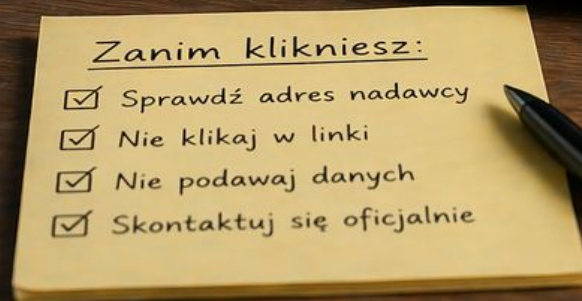 Zanim klikniesz:
Sprawdź adres nadawcy
Nie klikaj w linki
Nie podawaj danych
Skontaktuj się oficjalnie